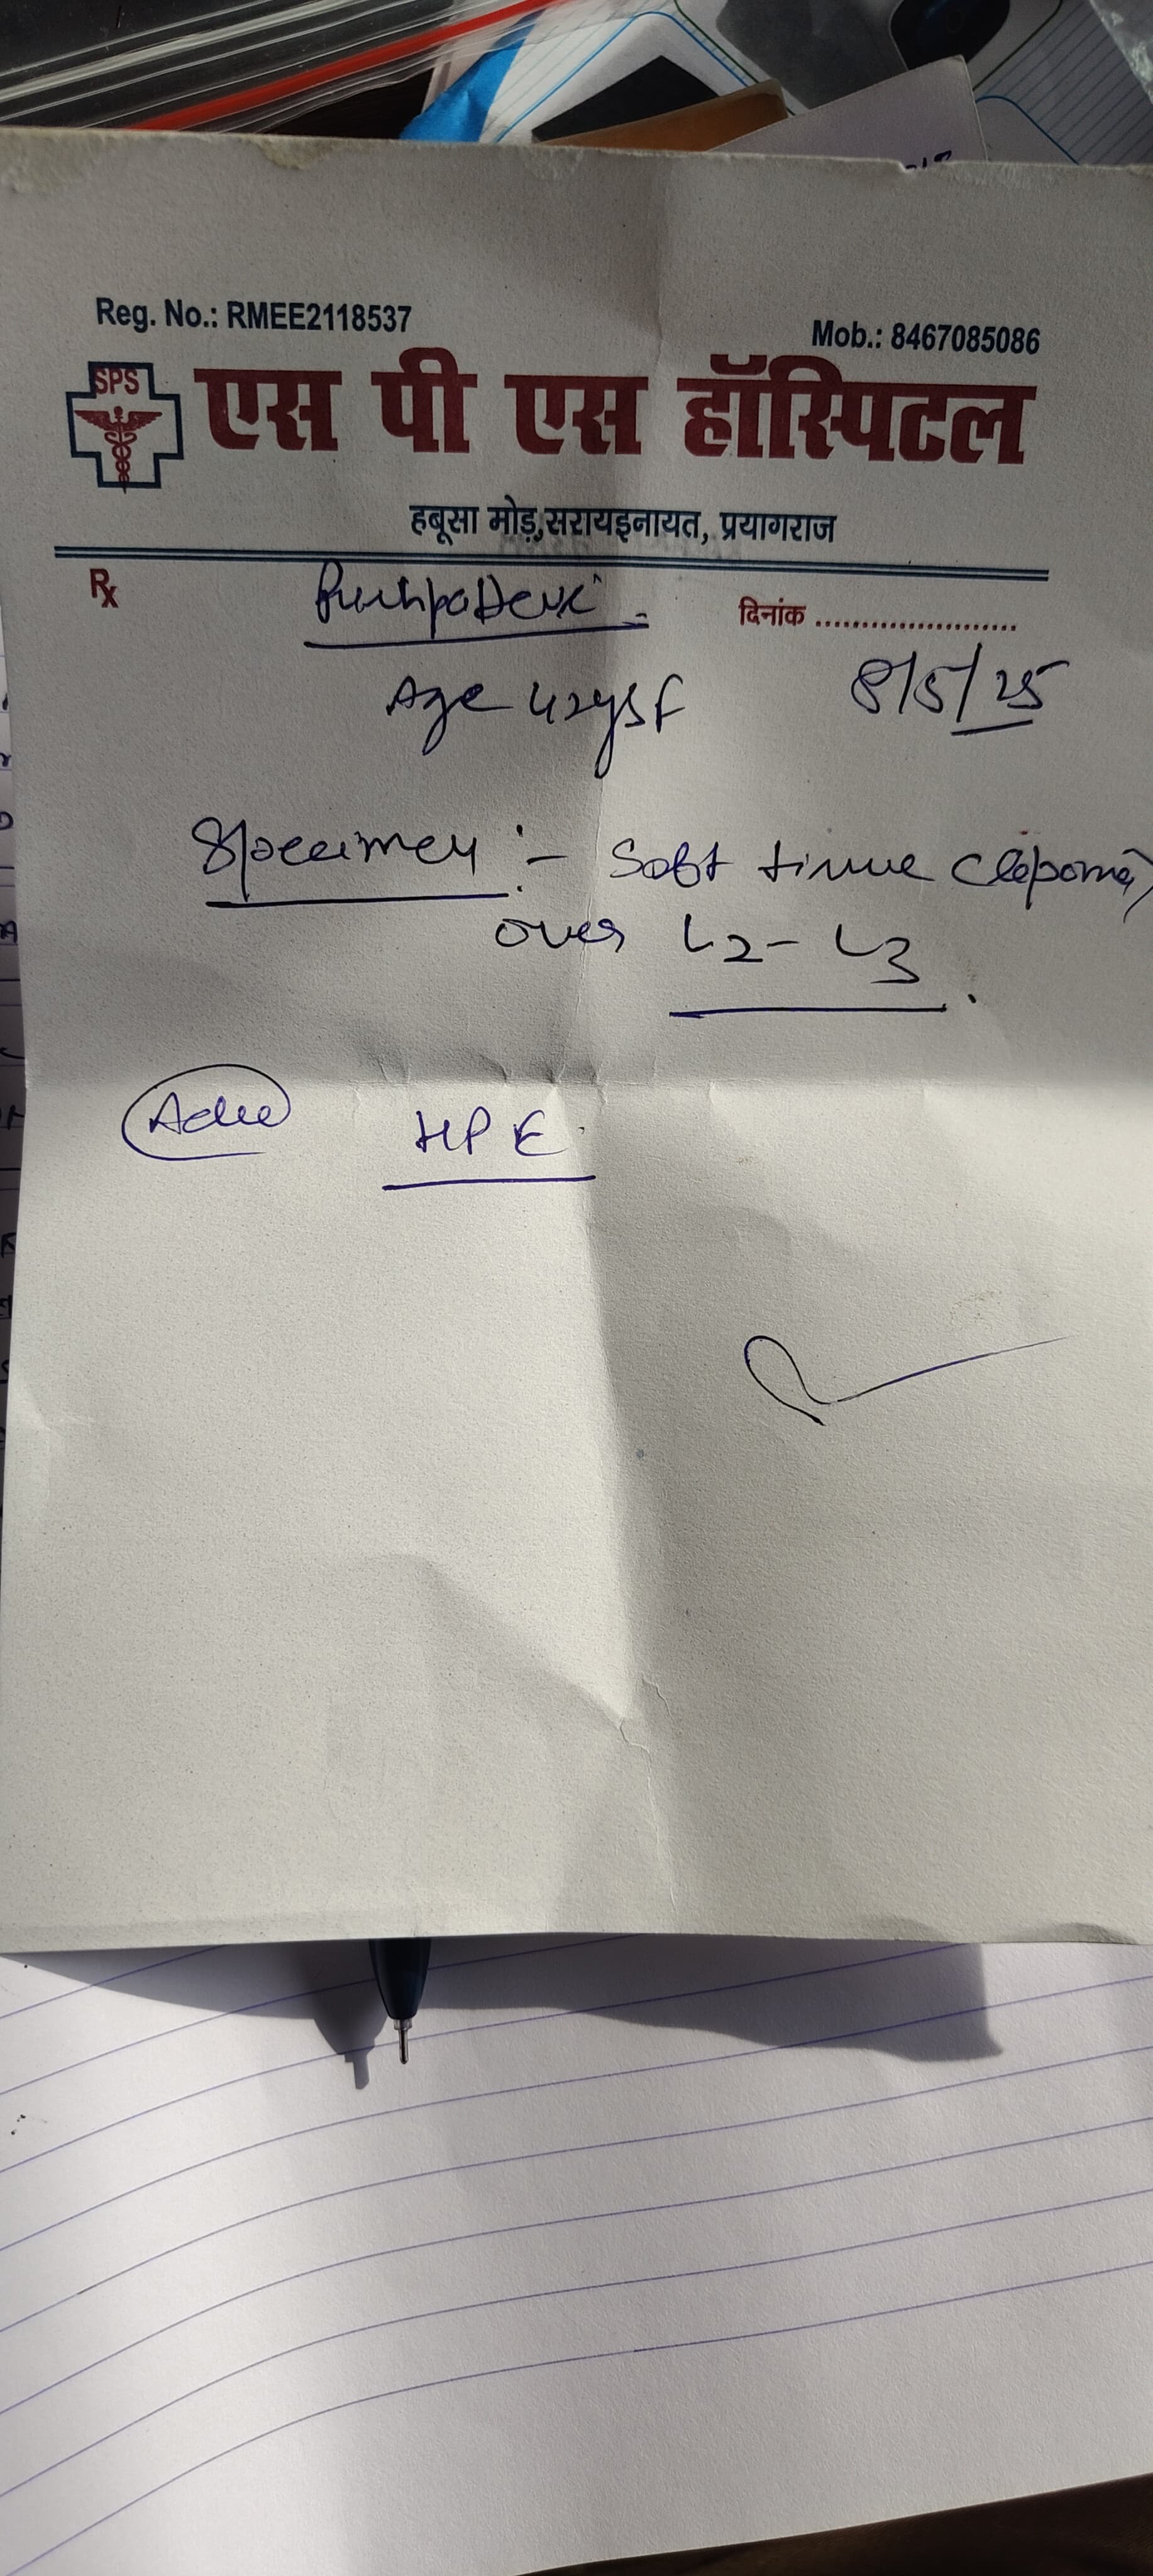 Reg. No.: RMEE2118537
Mob.: 8467085086
SPS
एस पी एस हॉस्पिटल
हबूसा मोड़,सरायइनायत, प्रयागराज
Rx
Pushpa Devi
दिनांक ......................
Age 42ys F
8/5/25
Specimen :- Soft tissue (lipoma)
over L2-L3.
Adv
HPE